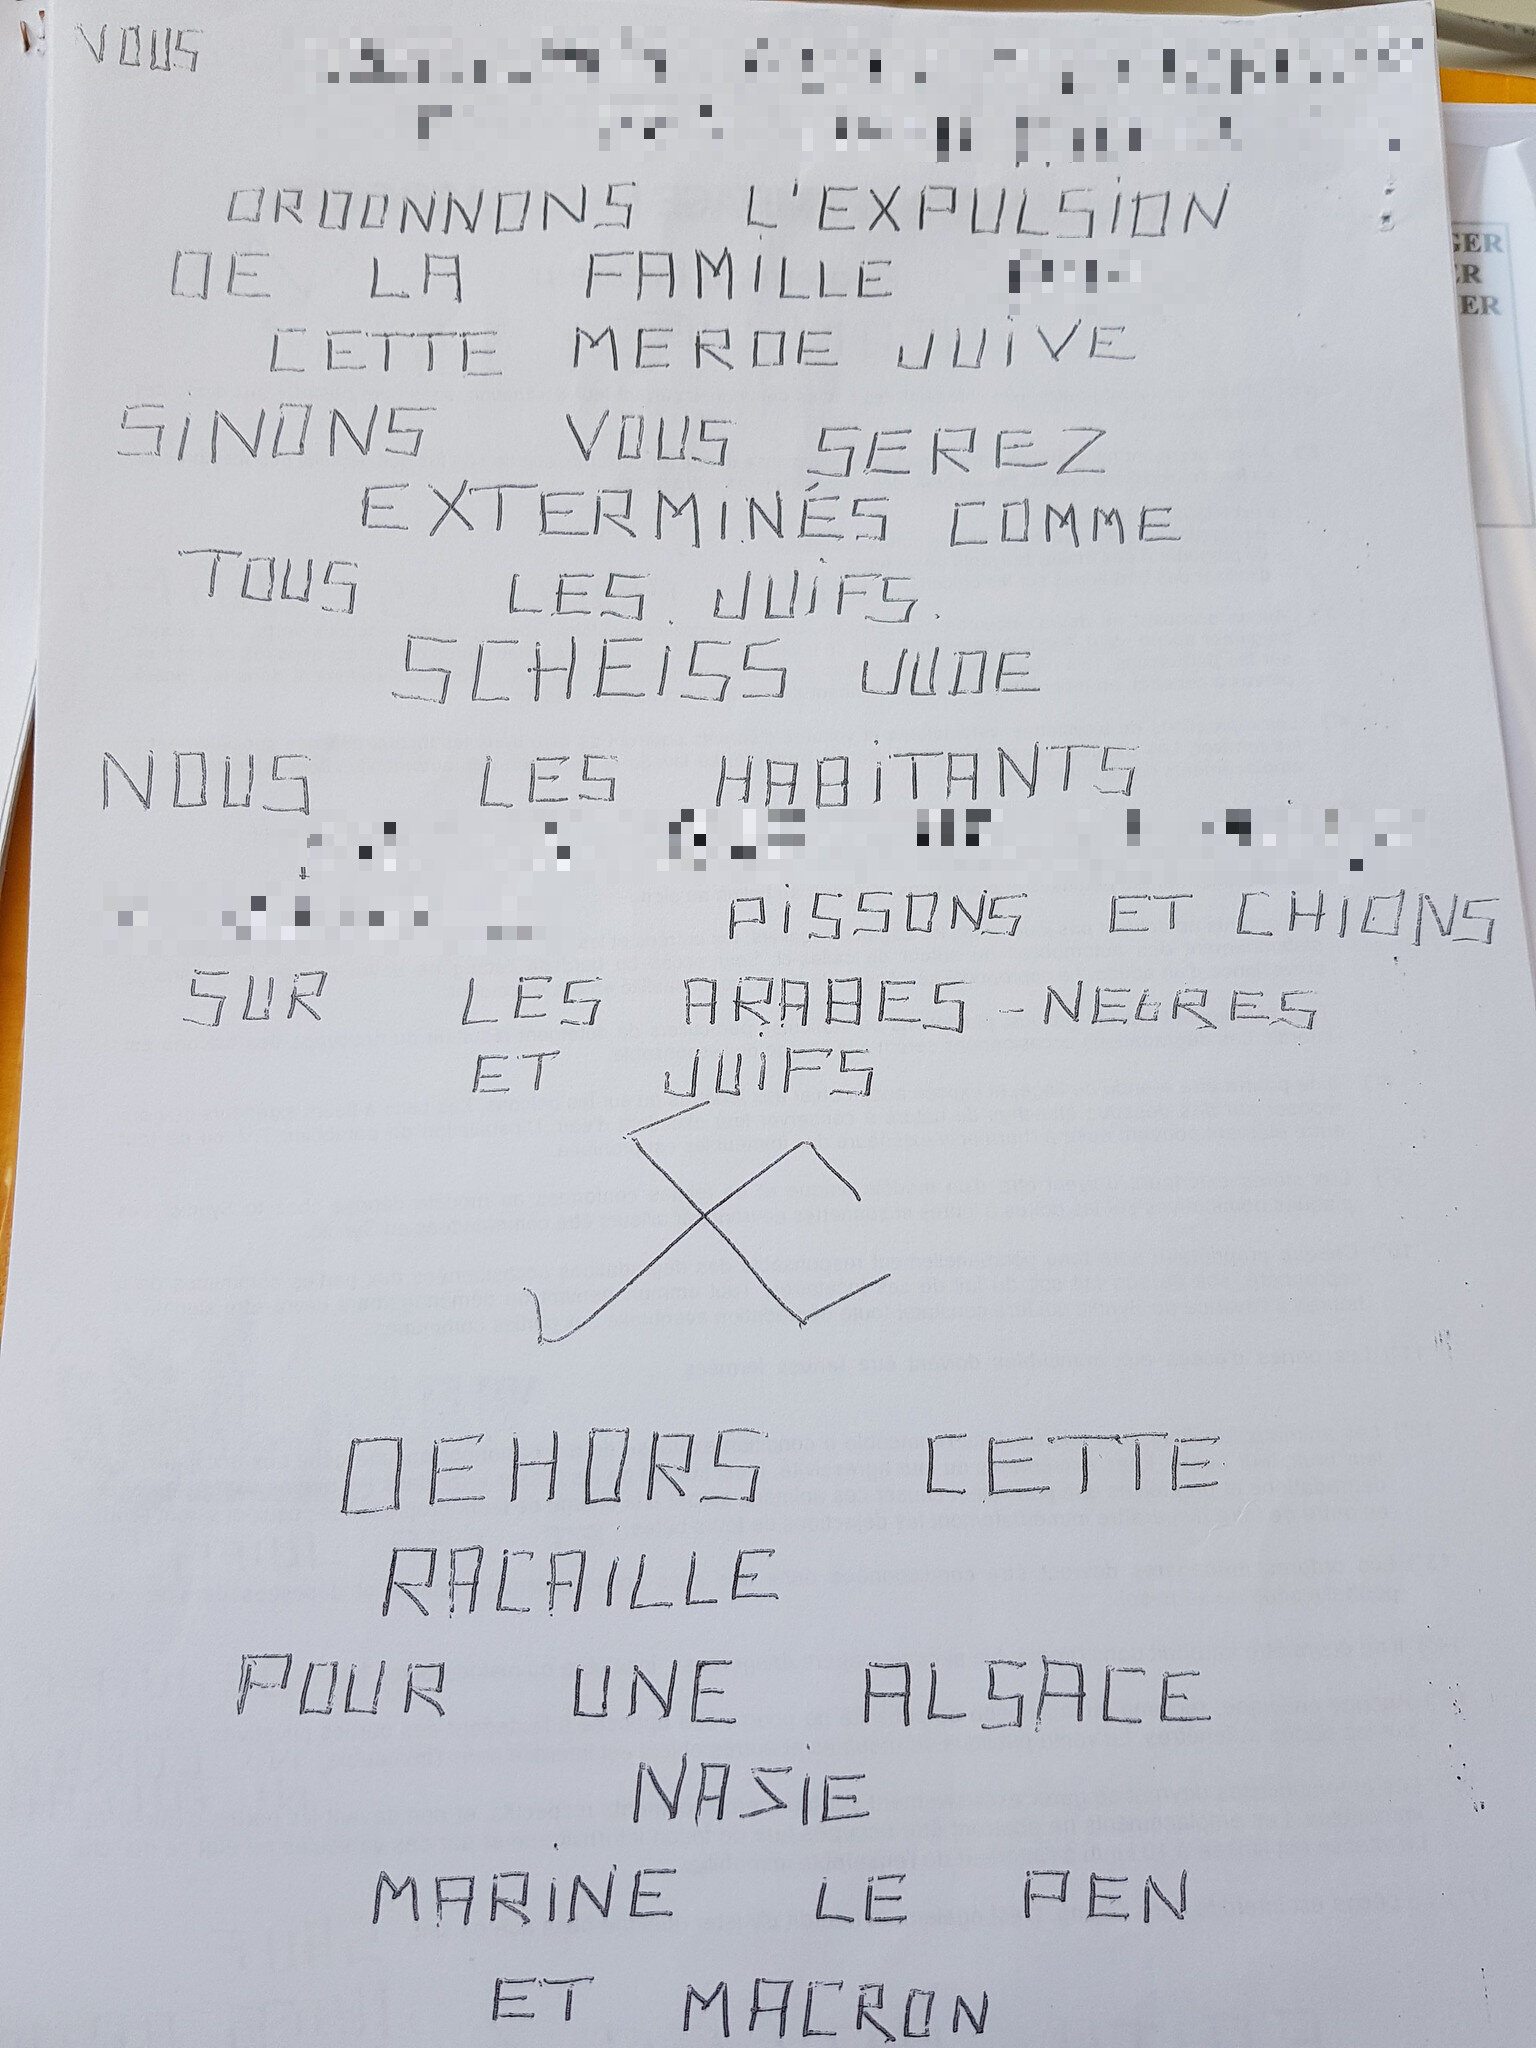 VOUS
ORDONNONS L'EXPULSION
DE LA FAMILLE
CETTE MERDE JUIVE
SINONS VOUS SEREZ
EXTERMINÉS COMME
TOUS LES JUIFS.
SCHEISS JUDE
NOUS LES HABITANTS
PISSONS ET CHIONS
SUR LES ARABES - NEGRES
ET JUIFS
DEHORS CETTE
RACAILLE
POUR UNE ALSACE
NASIE
MARINE LE PEN
ET MACRON
GER
ER
ER